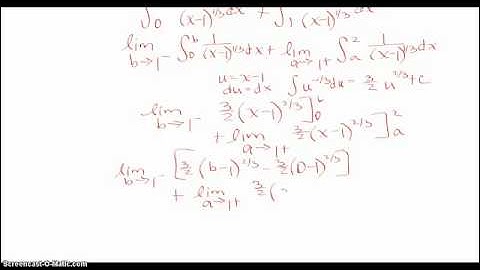 ∫₀ 1/(x-1)^1/3 dx + ∫₁ 1/(x-1)^1/3 dx
lim b→1⁻ ∫₀ᵇ 1/(x-1)^1/3 dx + lim a→1+ ∫ₐ² 1/(x-1)^1/3 dx
u=x-1
du=dx ∫u^-1/3 du = 3/2 u^2/3 + c
lim b→1⁻ 3/2 (x-1)^2/3 ]₀ᵇ
+ lim a→1+ 3/2 (x-1)^2/3 ]ₐ²
lim b→1⁻ [3/2 (b-1)^2/3 - 3/2 (0-1)^2/3]
+ lim a→1+ 3/2 (
Screencast-O-Matic.com